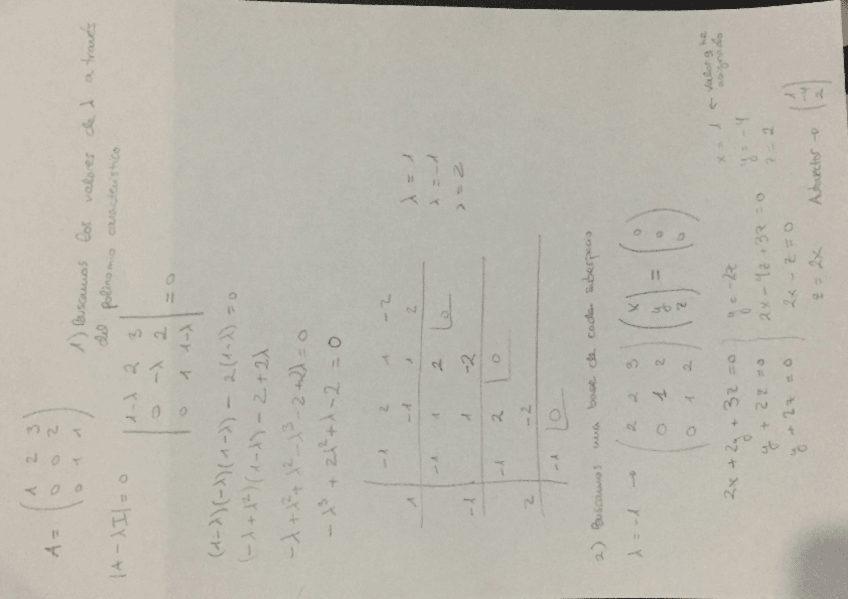 A = ( 1 2 3
0 0 2
0 1 1 )
1) Buscamos los valores de λ a través
del polinomio característico
|A - λI| = 0
| 1-λ 2 3
0 -λ 2
0 1 1-λ | = 0
(1-λ)(-λ)(1-λ) - 2(1-λ) = 0
(-λ+λ²)(1-λ) - 2 + 2λ
-λ + λ² + λ² - λ³ - 2 + 2λ = 0
-λ³ + 2λ² + λ - 2 = 0
-1 2 1 -2
1 -1 1 2
-1 1 2 0
-1 1 -2
-1 2 0
2 -2
-1 0
λ = 1
λ = -1
λ = 2
2) Buscamos una base de cada subespacio
λ = -1 → ( 2 2 3
0 1 2
0 1 2 ) ( x
y
z ) = ( 0
0
0 )
2x + 2y + 3z = 0
y + 2z = 0
y + 2z = 0
y = -2z
2x - 4z + 3z = 0
2x - z = 0
z = 2x
x = 1 ← valor q he
asignado
y = -4
z = 2
Autovector → ( 1
-4
2 )